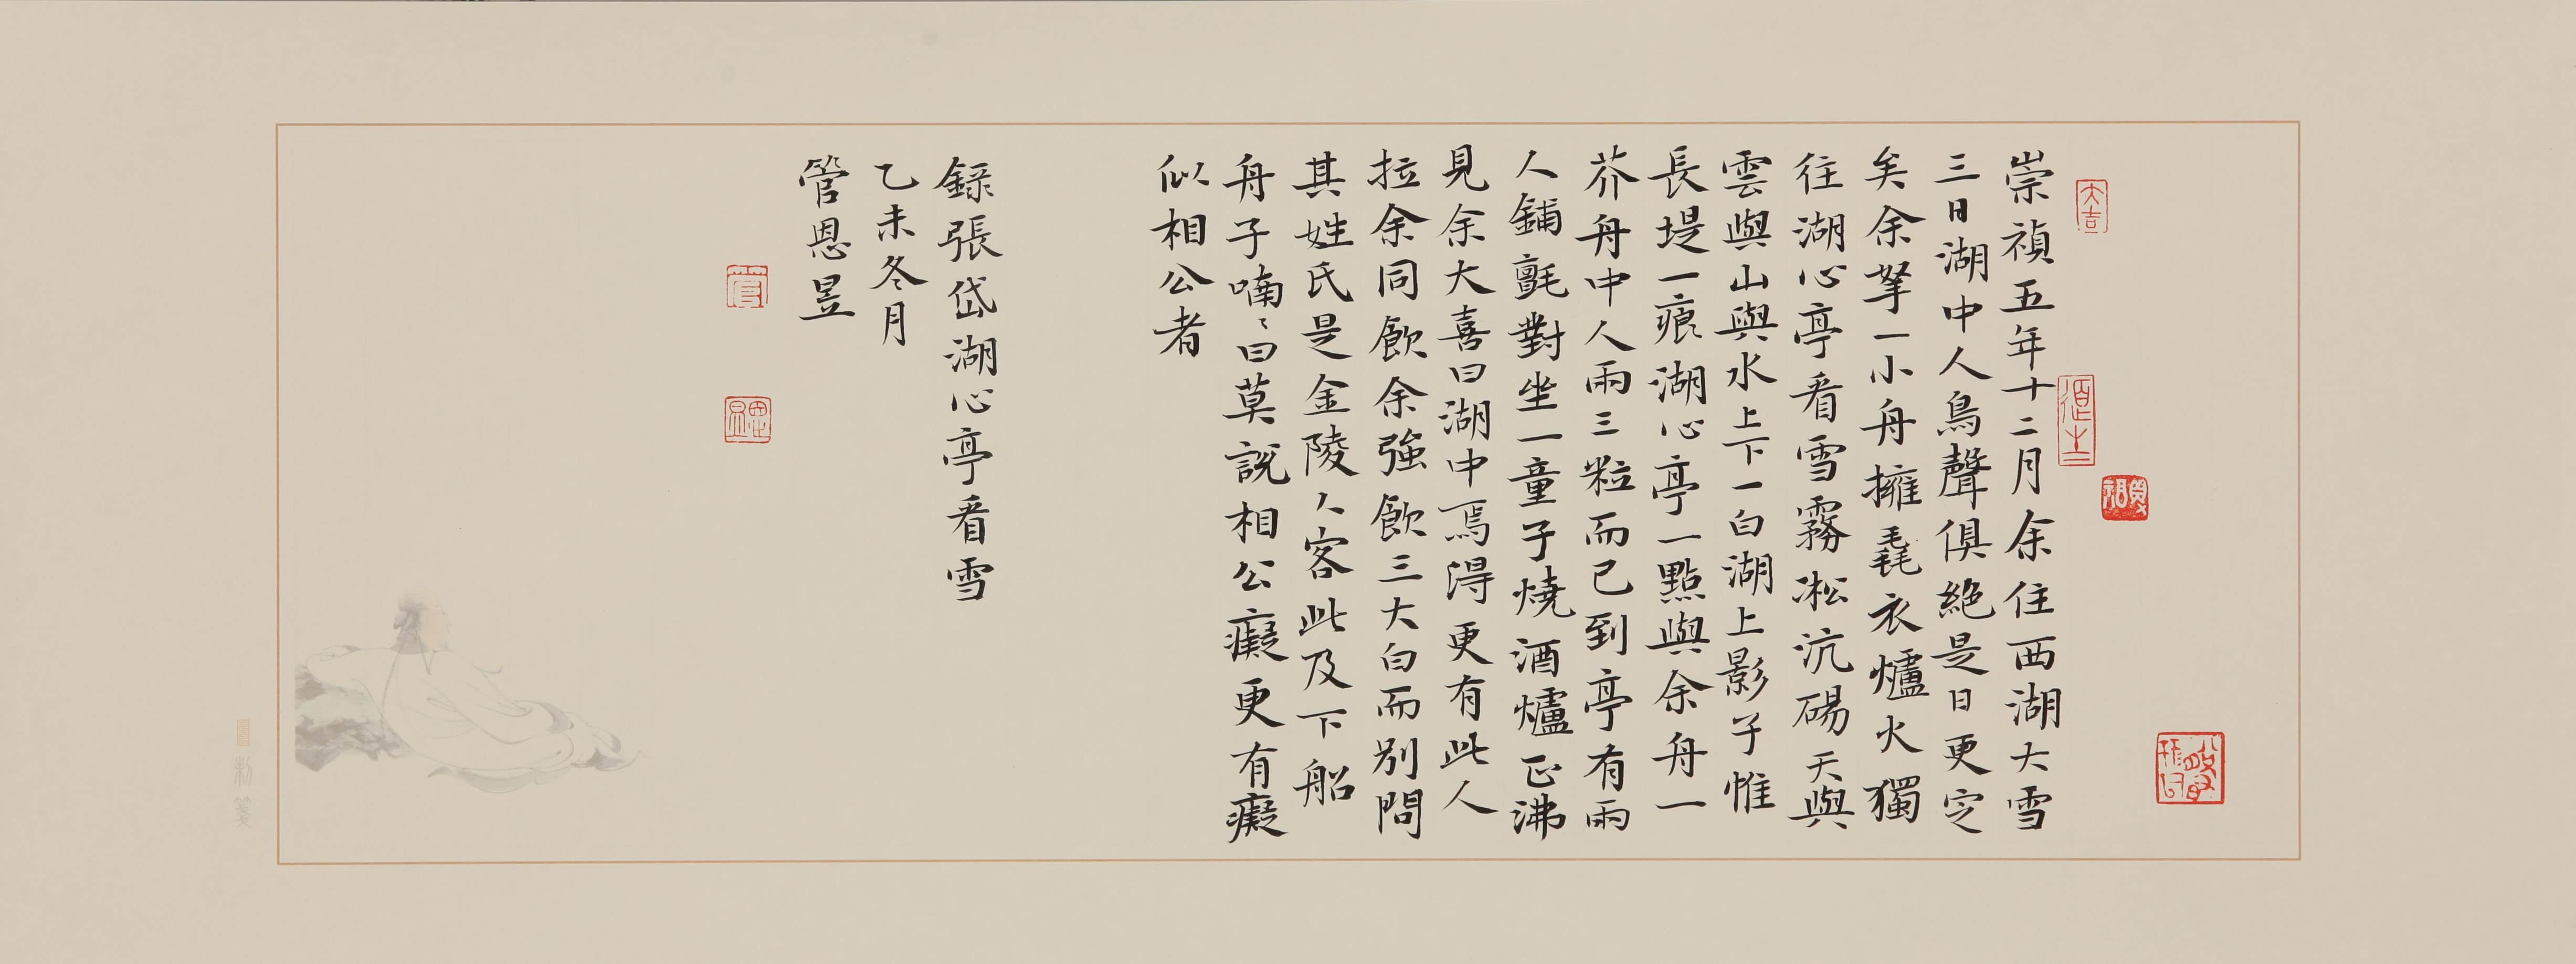 崇禎五年十二月余住西湖大雪
三日湖中人鳥聲俱絶是日更定
矣余拏一小舟擁毳衣爐火獨
往湖心亭看雪霧凇沆碭天與
雲與山與水上下一白湖上影子惟
長堤一痕湖心亭一點與余舟一
芥舟中人兩三粒而已到亭有兩
人鋪氈對坐一童子燒酒爐正沸
見余大喜曰湖中焉得更有此人
拉余同飲余強飲三大白而別問
其姓氏是金陵人客此及下船
舟子喃〻曰莫說相公癡更有癡
似相公者
錄張岱湖心亭看雪
乙未冬月
管恩昱
大吉
管
恩昱